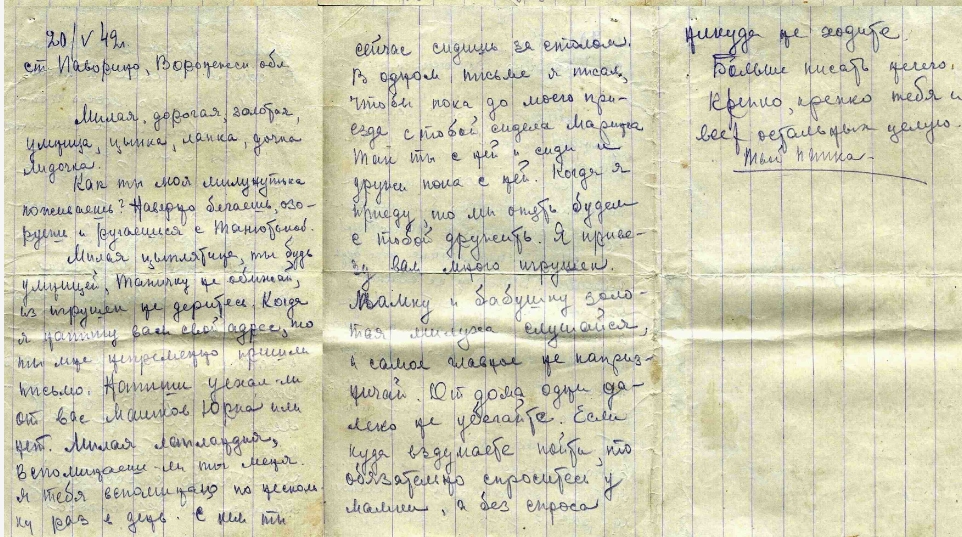 20/V 42г.
ст. Поворино, Воронежск. обл.
Милая, дорогая, золотая,
умница, цыпка, лапка, дочка
Лидочка.
Как ты моя милушутька
поживаешь? Наверно бегаешь, озо-
руешь и ругаешься с Танютокой.
Милая цыплятица, ты будь
умницей, Таничку не обижай,
из игрушек не деритесь. Когда
я напишу вам свой адрес, то
ты мне непременно пришли
письмо. Напиши уехал-ли
от вас Машков Юрка или
нет. Милая лапландия,
вспоминаешь-ли ты меня.
Я тебя вспоминаю по несколь-
ку раз в день. С кем ты
сейчас сидишь за столом.
В одном письме я писал,
чтобы пока до моего при-
езда с тобой сидела Маринка
Так ты с ней и сиди и
дружи пока с ней. Когда я
приеду, то мы опять будем
с тобой дружить. Я приве-
зу вам много игрушек.
Мамку и бабушку золо-
тая милуха слушайся,
и самое главное не каприз-
ничай. От дома одни да-
леко не убегайте. Если
куда вздумаете пойти, то
обязательно спроситесь у
мамки, а без спроса
никуда не ходите.
Больше писать нечего.
Крепко, крепко тебя и
всех остальных целую.
Твой папка.